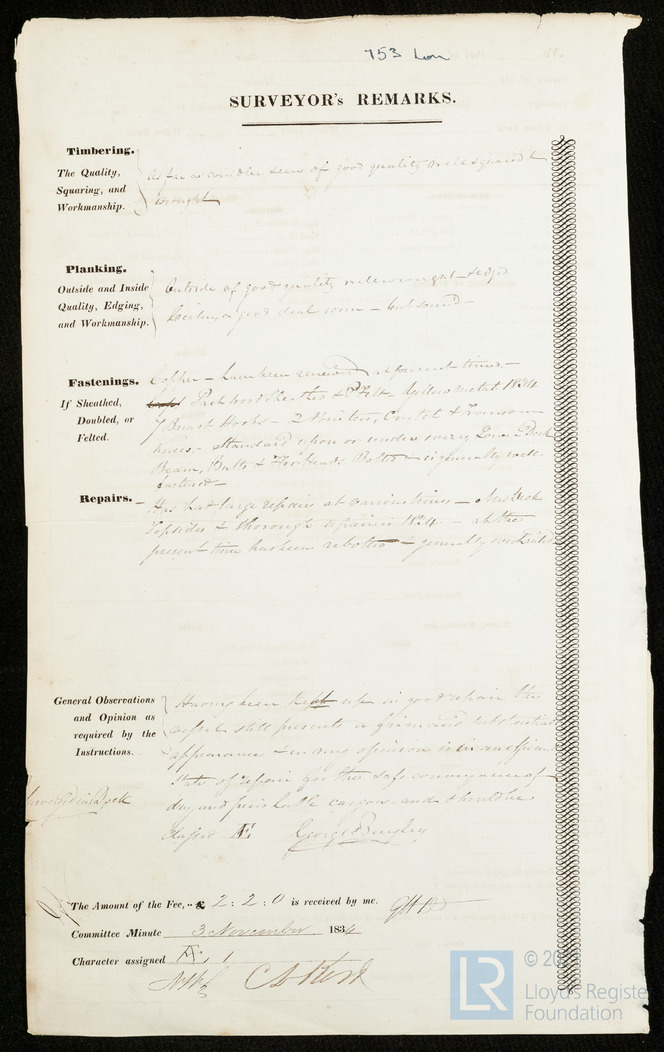 753 Lon
SURVEYOR's REMARKS.
Timbering.
The Quality,
Squaring, and
Workmanship.
As far as could be seen of good quality well squared &
wrought
Planking.
Outside and Inside
Quality, Edging,
and Workmanship.
Outside of good quality well wrought & edged
Ceiling a good deal worn - but sound -
Fastenings.
If Sheathed,
Doubled, or
Felted.
Copper - have been renewed at different times -
Felt, Yellow Metal 1834
7 Breast Hooks - 2 & Transom
knees - Standard upon or under every Lower Deck
Beam, Butts & Floorheads Bolted - is generally well
fastened -
Repairs.
- Has had large repairs at various times - New Deck
Topsides & thorough repair in 1824 - at the
present time has been rebolted & generally
General Observations
and Opinion as
required by the
Instructions.
Having been kept up in good repair the
vessel still presents a firm and substantial
appearance & in my opinion is in an efficient
state of repair for the safe conveyance of
dry and perishable cargoes and should be
classed Æ. George Bayley
The Amount of the Fee, £ 2 : 2 : 0 is received by me.
Committee Minute 3 November 1834
Character assigned Æ. 1
© 20
Lloyd's Register
Foundation
LR